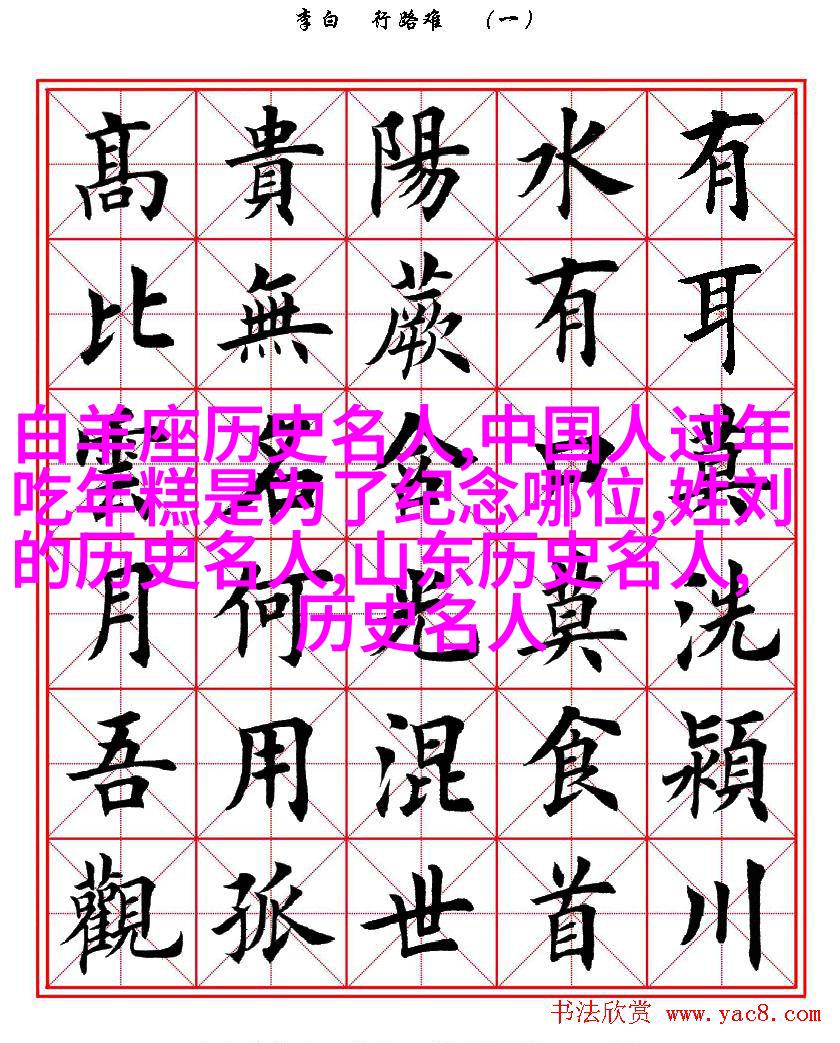 李白 行路难 （一）
有耳莫洗潁川
水有口莫食首
陽蕨含光混世
貴無名何用孤
髙比雲月吾觀
白羊座历史名人,中国人过年
吃年糕是为了纪念哪位,姓刘
的历史名人,山东历史名人,
历史名人
书法欣赏 www.yac8.com